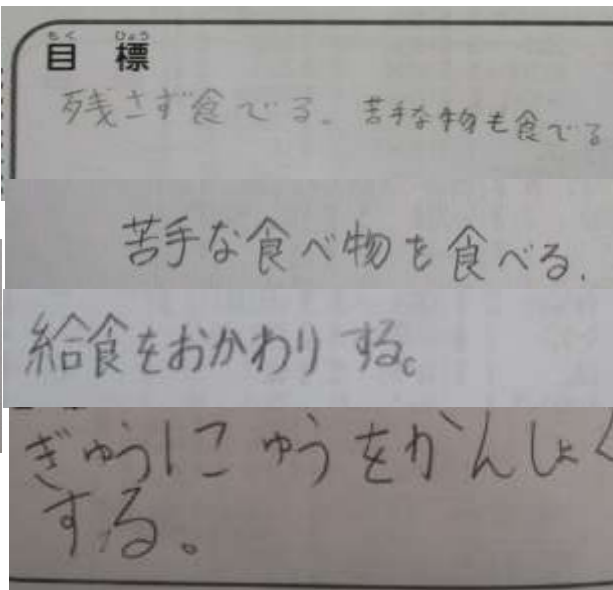 もく ひょう
目 標
残さず食べる。苦手な物も食べる
苦手な食べ物も食べる.
給食をおかわりする。
ぎゅうにゅうをかんしょく
する。